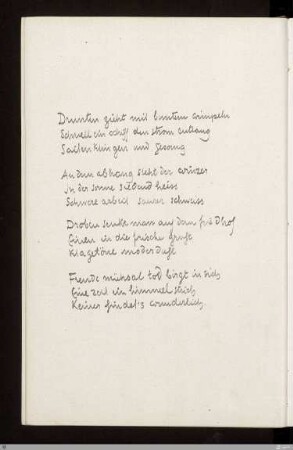 Drunten zieht mit bunten wimpeln
Schnell ein schiff den strom entlang
Saitenklingen und gesang

An dem abhang steht der winzer
In der sonne siedend heiss
Schwere arbeit saurer schweiss

Droben senkt man auf dem friedhof
Einen in die frische gruft
Klagetöne moderduft

Freude mühsal tod birgt in sich
Eine zeit ein himmelstrich
Keiner findet's wunderlich